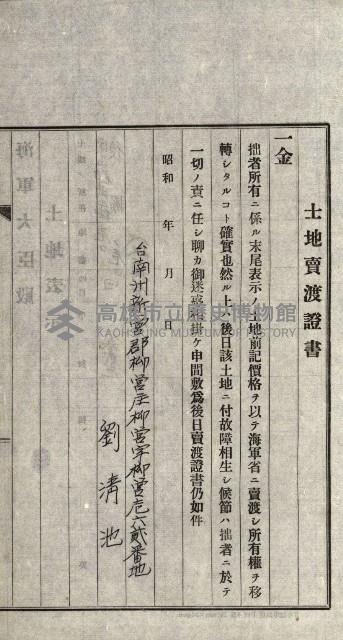 土地賣渡證書
一金
拙者所有ニ係ル末尾表示ノ土地前記價格ヲ以テ海軍省ニ賣渡シ所有權ヲ移
轉シタルコト確實也然ル上ハ後日該土地ニ付故障相生シ候節ハ拙者ニ於テ
一切ノ責ニ任シ聊カ御迷惑相掛ケ申間敷爲後日賣渡證書仍如件
昭和 年 月 日
台南州新營郡柳營庄柳營字柳營壱六貳番地
劉清池
海軍大臣殿
土地表示
高雄市立歷史博物館
KAOHSIUNG MUSEUM OF HISTORY